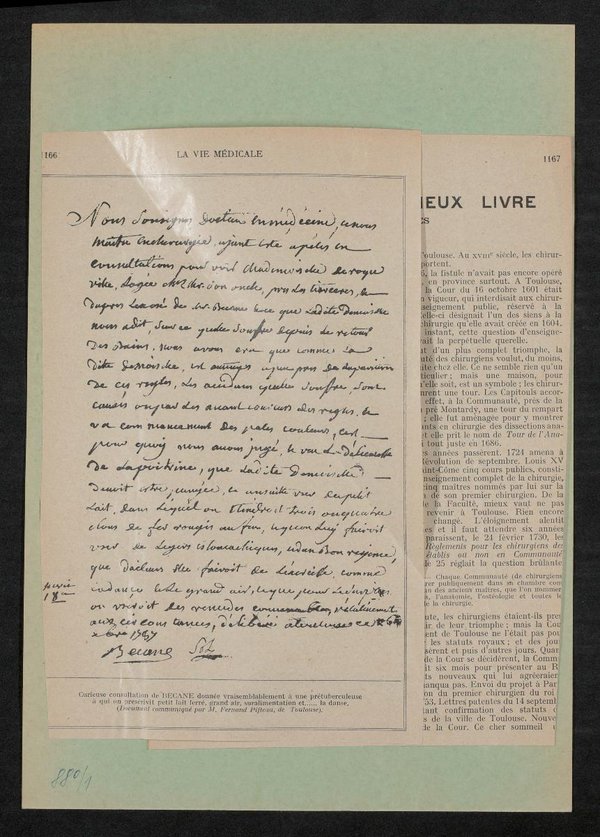 166
LA VIE MÉDICALE
Nous Soussignes Docteur En médécine, & nous
maitre En chirurgie, ajant été apélés en
Consultations pour voir Mademoiselle de roque
Logée Chès Mr. Son oncle, près les
de Mr. Becane & ce que Ladite Demoiselle
nous adit, Sur ce quelle Souffre depuis Le retour
Des Bains, nous avons cru que comme La
Dite demoiselle, est
De ces regles, Les accidens quelle Souffre, Sont
causés
commancement des pales couleurs, c'est
pour quoÿ nous avons jugé, & vu La délicatesse
De Lapoitrine, que Ladite Demoiselle
Devoit être, & ensuite user du petit
Lait, dans Lequel on trois ou quatre
clous de fer rougis au feu,
user de Legers Stomachiques, & dun Bon regime,
que d'ailleurs Elle fairoit De Léxercice, comme
La dance & le grand air,
on useroit des remedes relativement
aux circonstances, délibéré à toulouse ce
1767
Becane
Curieuse consultation de BECANE donnée vraisemblablement à une prétuberculeuse
à qui on prescrivit petit lait ferré, grand air, suralimentation et..... la danse.
(Document communiqué par M. Fernand Pifteau, de Toulouse).
880/1
1167
IEUX LIVRE
ES
Toulouse. Au XVIIIe siècle, les chirur-
portent.
5, la fistule n'avait pas encore opéré
, en province surtout. A Toulouse,
la Cour du 16 octobre 1601 était
vigueur, qui interdisait aux chirur-
seignement public, réservé à la
elle-ci désignait l'un des siens à la
chirurgie qu'elle avait créée en 1604.
instant, cette question d'enseigne-
vait la perpétuelle querelle.
t d'un plus complet triomphe, la
té des chirurgiens voulut, du moins,
ite chez elle. Ce ne semble rien qu'un
ticulier; mais une maison, pour
u'elle soit, est un symbole ; les chirur-
urent une tour. Les Capitouls accor-
effet, à la Communauté, près de la
pré Montardy, une tour du rempart
; elle fut aménagée pour y montrer
ants en chirurgie des dissections ana-
et elle prit le nom de Tour de l'Ana-
i tout juste en 1686.
es années passèrent. 1724 amena à
Révolution de septembre. Louis XV
aint-Côme cinq cours publics, consti-
nseignement complet de la chirurgie,
inq maîtres nommés par lui sur la
n de son premier chirurgien. De la
de la Faculté, mieux vaut ne pas
revenir à Toulouse. Rien encore
changé. L'éloignement alentit
es et il faut attendre six années
paraissent, le 24 février 1730, les
Règlements pour les chirurgiens de
établis ou non en Communauté
de 25 réglait la question brûlante
Chaque Communauté (de chirurgiens
rer publiquement dans sa chambre com-
un des anciens maîtres, que l'on nommer
l'anatomie, l'ostéologie et toutes le
de la chirurgie.
ute, les chirurgiens étaient-ils pres
ir de leur triomphe ; mais la Cou
ent de Toulouse ne l'était pas pou
les statuts royaux ; et des jou
sèrent et puis d'autres jours. Quan
de la Cour se décidèrent, la Comm
it six mois pour présenter au R
ts nouveaux qui lui agréeraien
anqua pas. Envoi du projet à Pari
on du premier chirurgien du roi
753. Lettres patentes du 14 septemb
tant confirmation des statuts d
s de la ville de Toulouse. Nouve
de la Cour. Ce cher sommeil